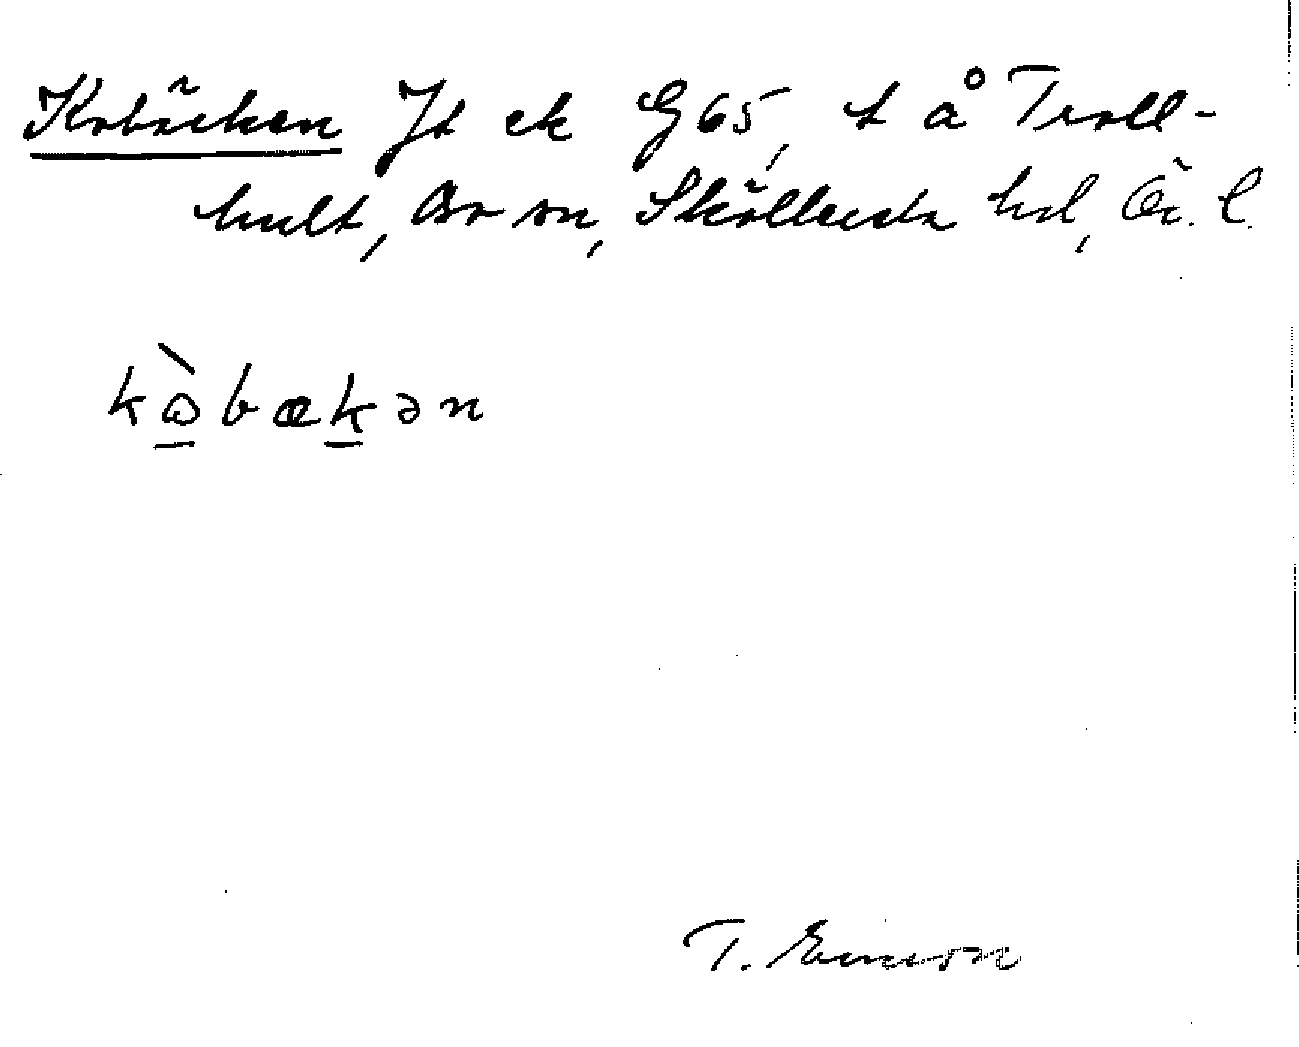 Kobäcken Jt ek G65, t å Troll-
hult, Bo sn, Sköllersta hd, Ö.
kòbækən
T. Ericson